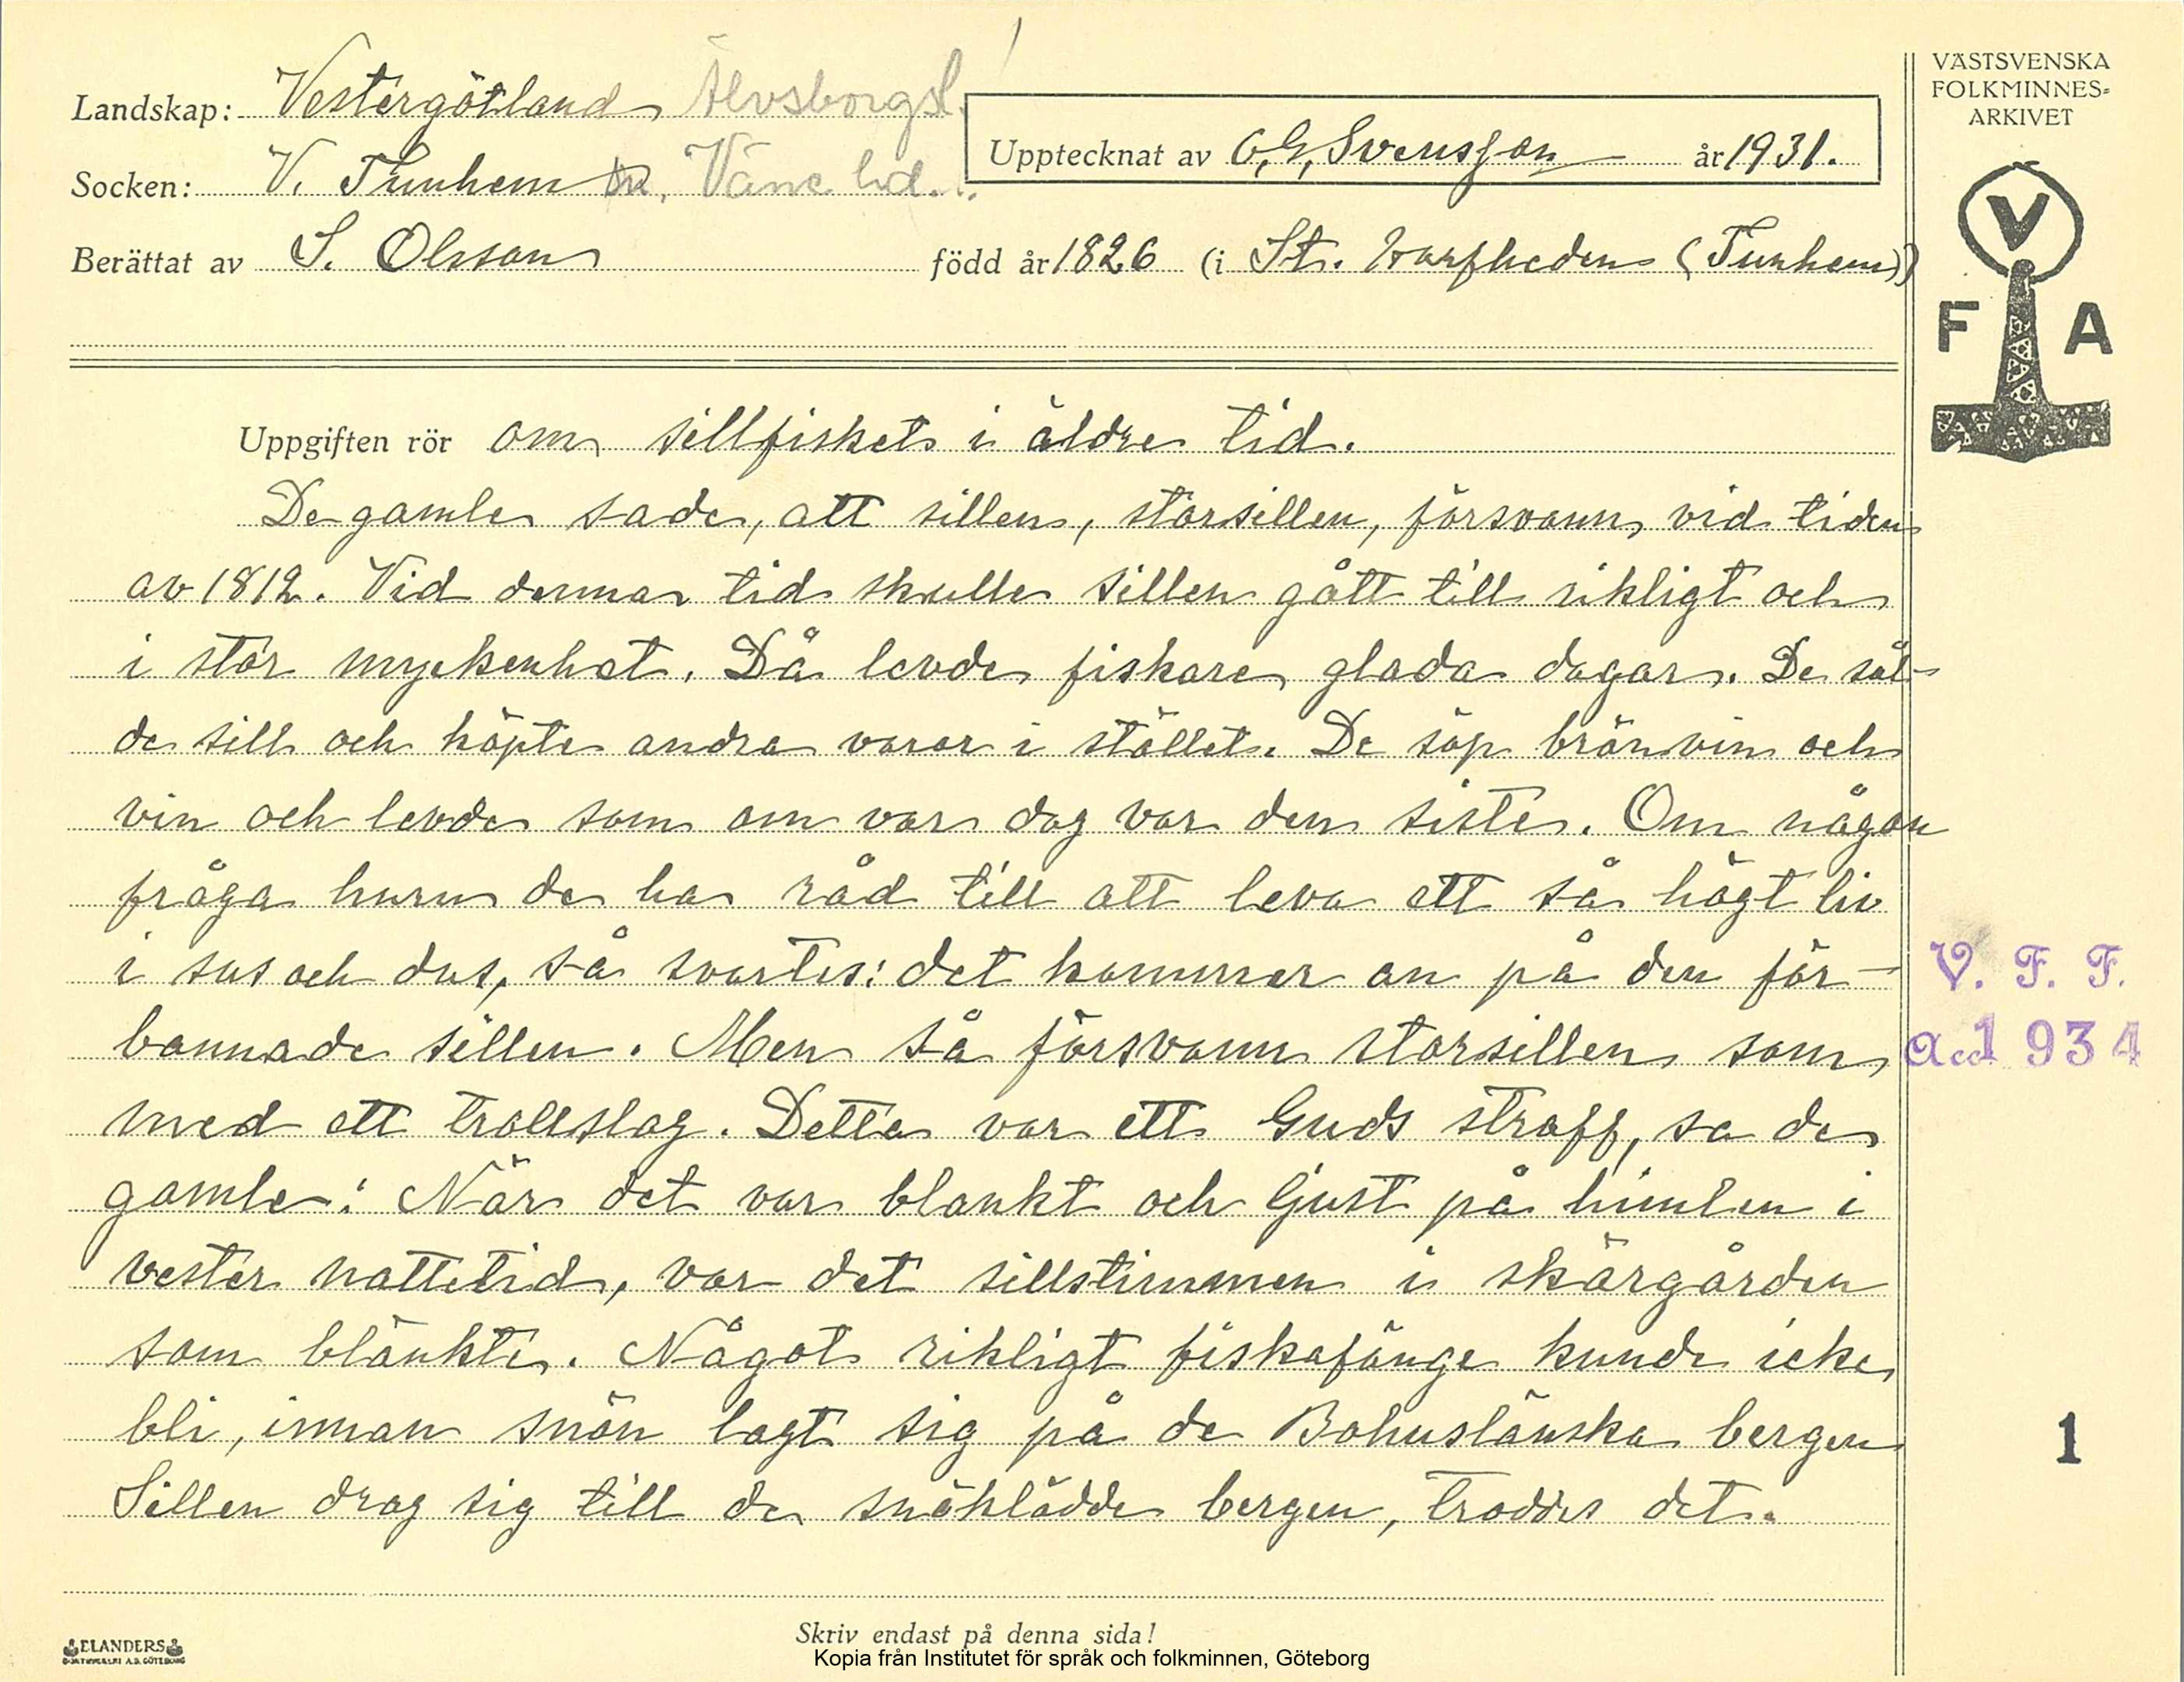 Landskap: Vestergötland Älvsborgsl.
Socken: V. Tunhem sn, Väne hd.
Berättat av S. Olsson född år 1826 (i St. Torfheden (Tunhem))
Upptecknat av C, G, Svensson år 1931.
VÄSTSVENSKA
FOLKMINNES-
ARKIVET
V
F A
Uppgiften rör om sillfisket i äldre tid.
De gamle sade, att sillen, storsillen, försvann vid tiden
av 1812. Vid denna tid skulle sillen gått till rikligt och
i stor myckenhet. Då levde fiskare glada dagar. De sål-
de sill och köpte andra varor i stället. De söp bränvin och
vin och levde som om var dag var den siste. Om någon
fråga huru de ha råd till att leva ett så högt liv
i sus och dus, så svartes: det kommer an på den för-
bannade sillen. Men så försvann storsillen som
med ett trollslag. Detta var ett Guds straff, sa de
gamle: När det var blankt och ljust på himlen i
vester nattetid, var det sillstimmen i skärgården
som blänkte. Något rikligt fiskafänge kunde icke
bli, innan snön lagt sig på de Bohuslänska bergen
Sillen drog sig till de snöklädde bergen, troddes det.
V. F. F.
acc 1934
1
ELANDERS
Skriv endast på denna sida!
Kopia från Institutet för språk och folkminnen, Göteborg